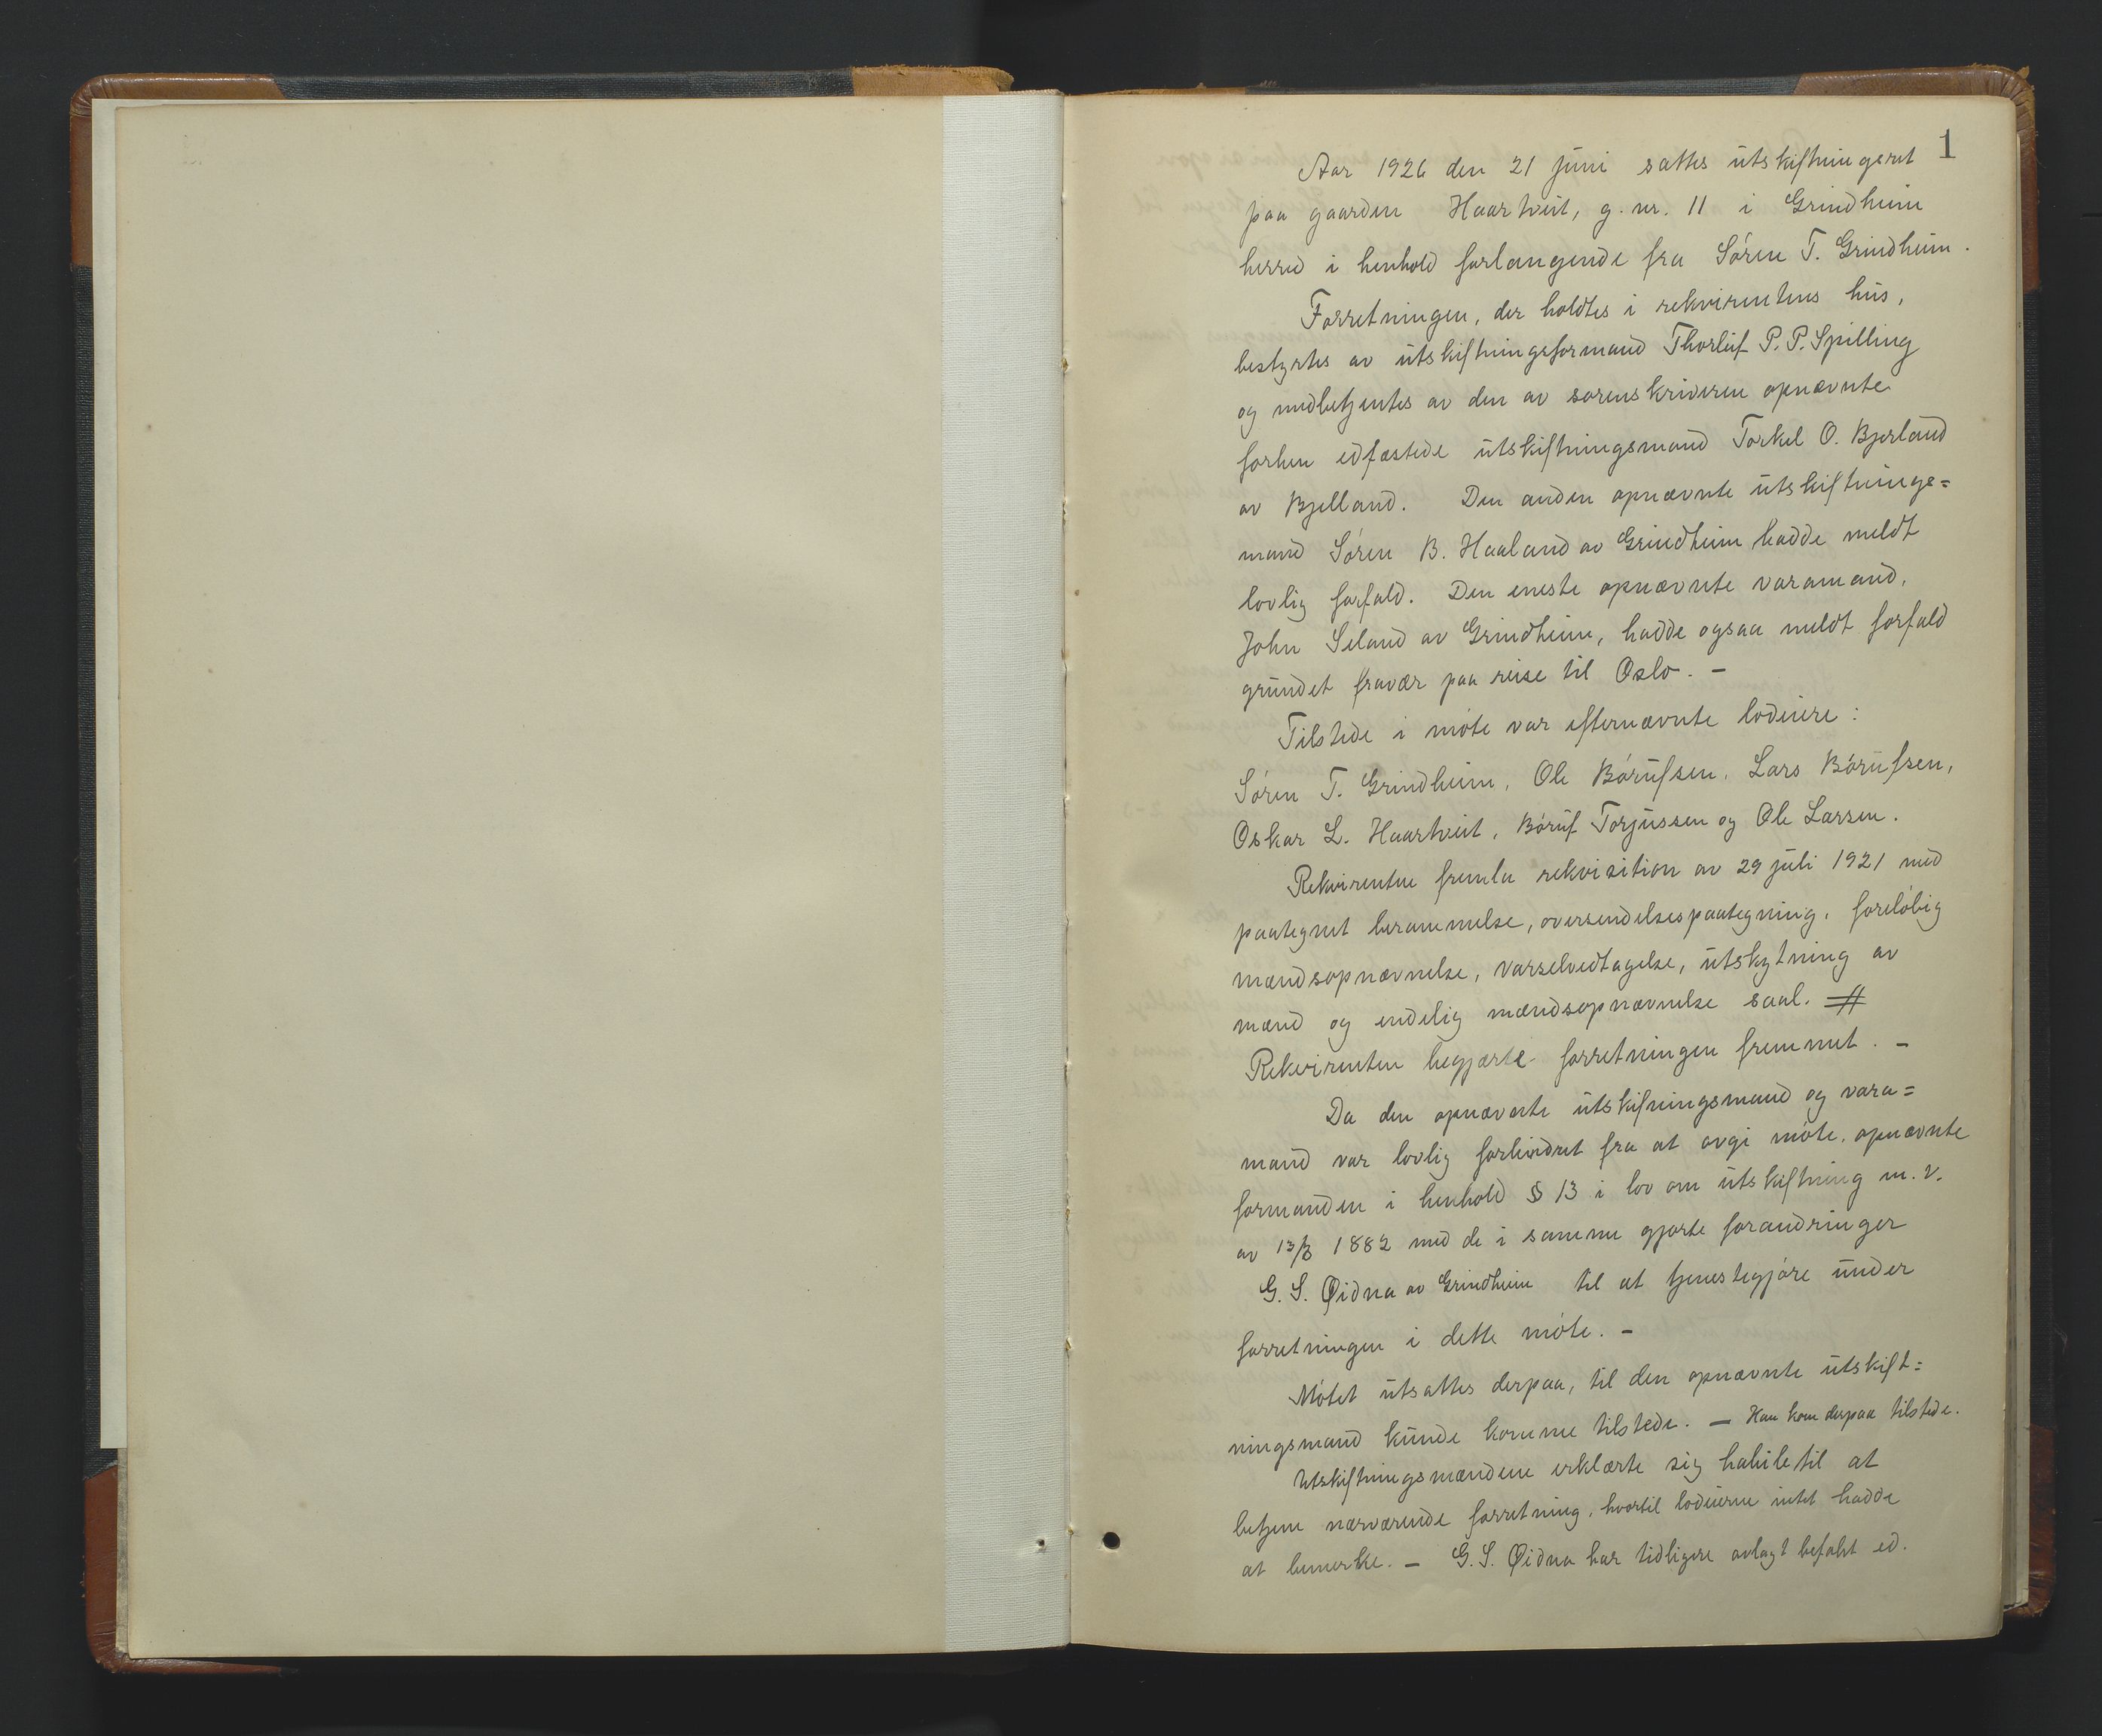 1
Aar 1926 den 21 juni sattes utskiftningsret
paa gaarden Haartveit, g. nr. 11 i Grindheim
herred i henhold forlangende fra Søren T. Grindheim.
Forretningen, der holdtes i rekvirentens hus,
bestyrtes av utskiftningsformand Thorleif P. P. Spilling
og medbetjentes av den av sorenskriveren opnævnte
forhen edfæstede utskiftningsmand Torkel O. Bjerland
av Bjelland. Den anden opnævnte utskiftnings=
mand Søren B. Haaland av Grindheim hadde meldt
lovlig forfald. Den eneste opnævnte varamand,
John Seland av Grindheim, hadde ogsaa meldt forfald
grundet fravær paa reise til Oslo. -
Tilstede i møte var efternævnte lodeiere:
Søren T. Grindheim, Ole Børufsen, Lars Børufsen,
Oskar L. Haartveit, Børuf Torjussen og Ole Larsen.
Rekvirenten fremla rekvisition av 29 juli 1921 med
paategnet berammelse, oversendelsespaategning, foreløbig
mændsopnævnelse, varselvedtagelse, utskytning av
mænd og endelig mændsopnævnelse saal. #
Rekvirenten begjærte forretningen fremmet. -
Da den opnævnte utskifningsmand og vara=
mand var lovlig forhindret fra at avgi møte, opnævnte
formanden i henhold § 13 i lov om utskiftning m. v.
av 13/3 1882 med de i samme gjorte forandringer
G. S. Øidna av Grindheim til at tjenestegjøre under
forretningen i dette møte. -
Møtet utsattes derpaa, til den opnævnte utskift=
ningsmand kunde komme tilstede. - Han kom derpaa tilstede.
Utskiftningsmændene erklærte sig habile til at
betjene nærværende forretning, hvortil lodeierne intet hadde
at bemerke. - G. S. Øidna har tidligere avlagt befalet ed.